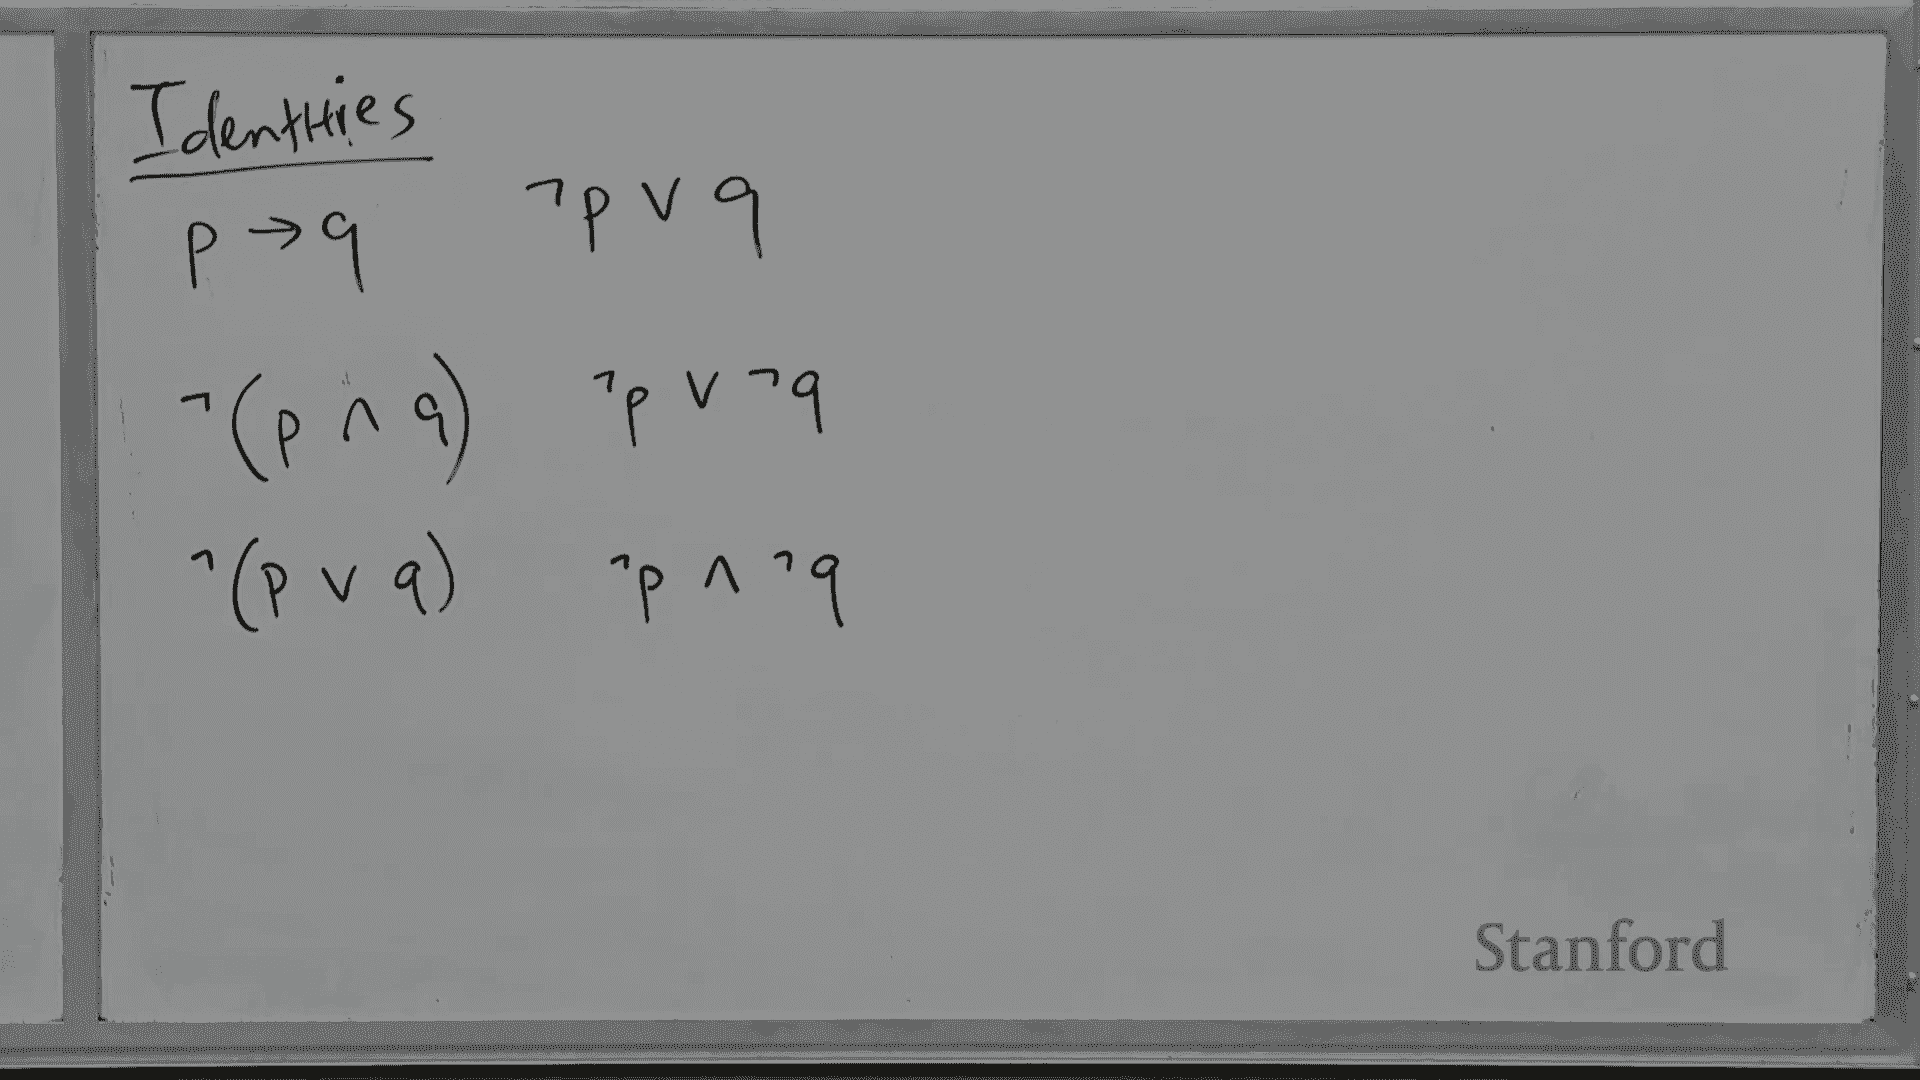 Identities
p → q ¬p ∨ q
¬(p ∧ q) ¬p ∨ ¬q
¬(p ∨ q) ¬p ∧ ¬q
Stanford